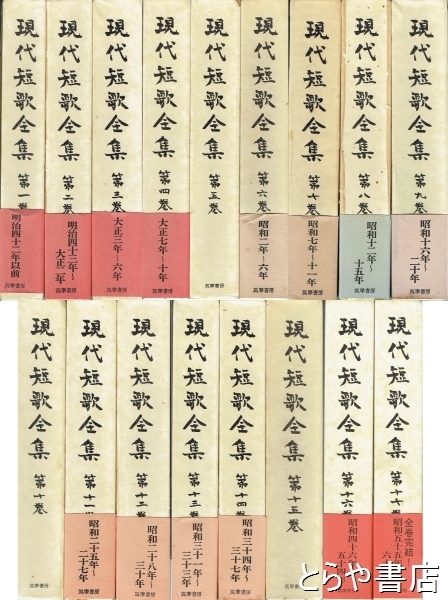 現代短歌全集 第一巻
明治四十二年以前
筑摩書房
現代短歌全集 第二巻
明治四十三年〜
大正二年
筑摩書房
現代短歌全集 第三巻
大正三年〜六年
筑摩書房
現代短歌全集 第四巻
大正七年〜十年
筑摩書房
現代短歌全集 第五巻
筑摩書房
現代短歌全集 第六巻
昭和二年〜六年
筑摩書房
現代短歌全集 第七巻
昭和七年〜十一年
筑摩書房
現代短歌全集 第八巻
昭和十二年〜
十五年
筑摩書房
現代短歌全集 第九巻
昭和十六年〜
二十年
筑摩書房
現代短歌全集 第十巻
筑摩書房
現代短歌全集 第十一
昭和二十五年〜
二十七年
筑摩書房
現代短歌全集 第十二
昭和二十八年〜
三十年
筑摩書房
現代短歌全集 第十三
昭和三十一年〜
三十三年
筑摩書房
現代短歌全集 第十四
昭和三十四年〜
三十七年
筑摩書房
現代短歌全集 第十五巻
筑摩書房
現代短歌全集 第十六
昭和四十六年〜
五十四
現代短歌全集 第十七
全巻完結！
昭和五十五年〜
六
とらや書店